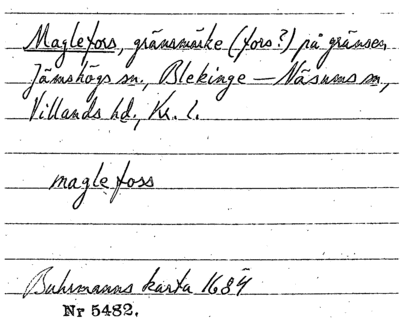 Maglefors, gränsmärke (fors?) på gränsen
Jämshögs sn., Blekinge – Näsums sn,
Villands hd., Kr. l.
magle foss
Buhrmanns karta 1684
Nr 5482.